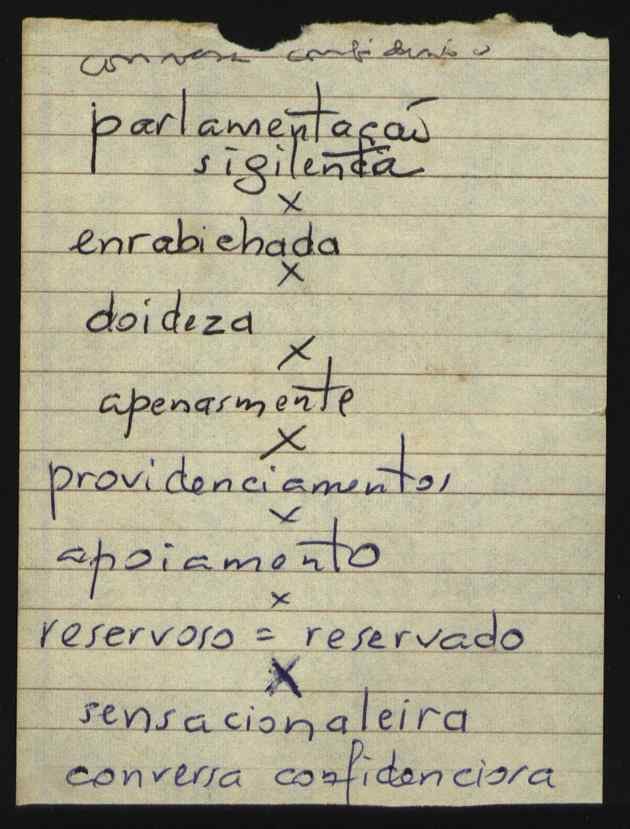 conversa
parlamentação
sigilenta
x
enrabichada
x
doideza
x
apenasmente
x
providenciamentos
x
apoiamento
x
reservoso = reservado
x
sensacionaleira
conversa confidenciosa